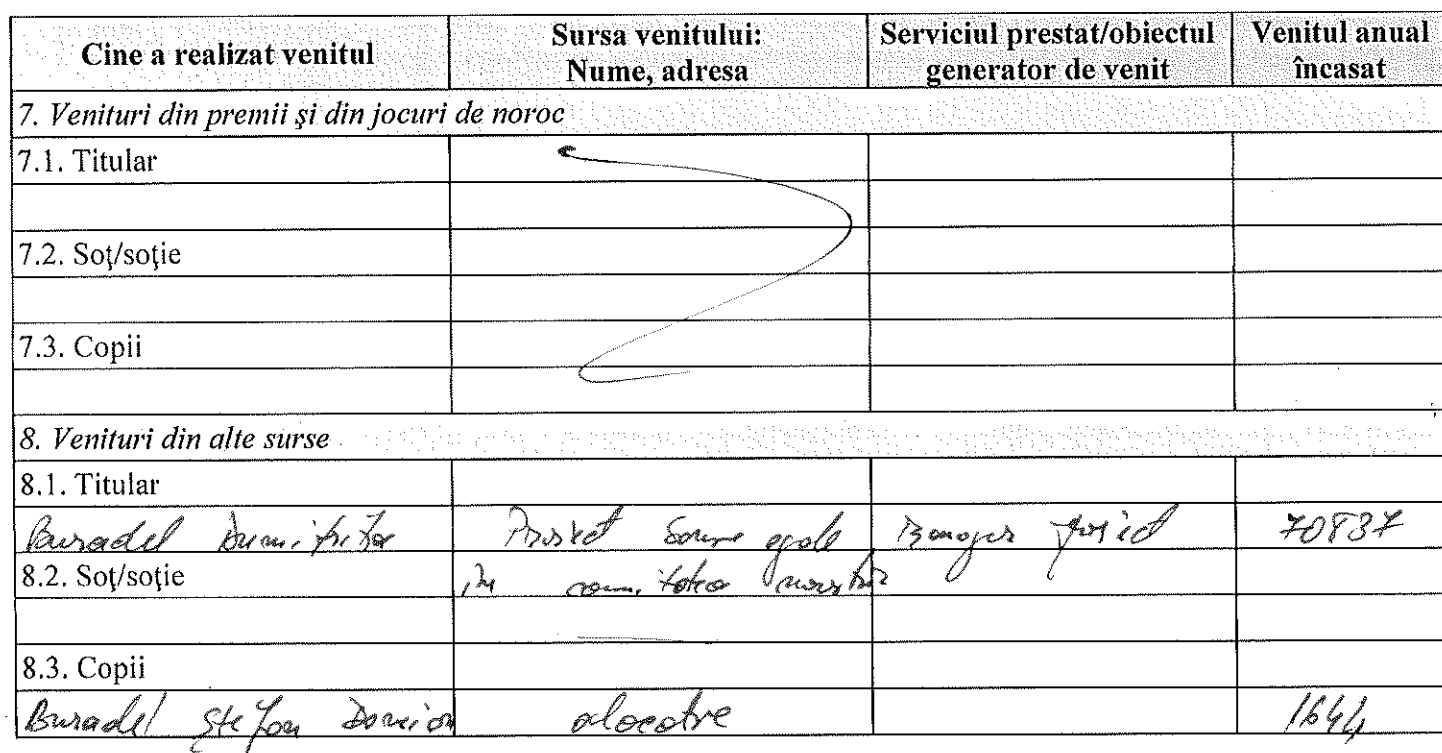 Cine a realizat venitul
Sursa venitului:
Nume, adresa
Serviciul prestat/obiectul
generator de venit
Venitul anual
încasat
7. Venituri din premii şi din jocuri de noroc
7.1. Titular
7.2. Soţ/soţie
7.3. Copii
8. Venituri din alte surse
8.1. Titular
Buradel Dumitrita Proiect Sanse egale Manager proiect 70837
8.2. Soţ/soţie in comunitatea noastra
8.3. Copii
Buradel Ştefan Damian alocatie 1644